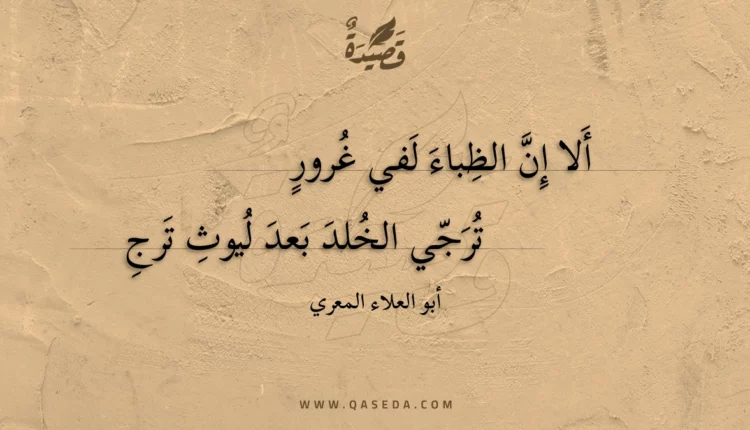 قَصِيدَةٌ
أَلا إِنَّ الظِباءَ لَفي غُرورٍ
تُرَجّي الخُلدَ بَعدَ لُيوثِ تَرجِ
أبو العلاء المعري
WWW.QASEDA.COM